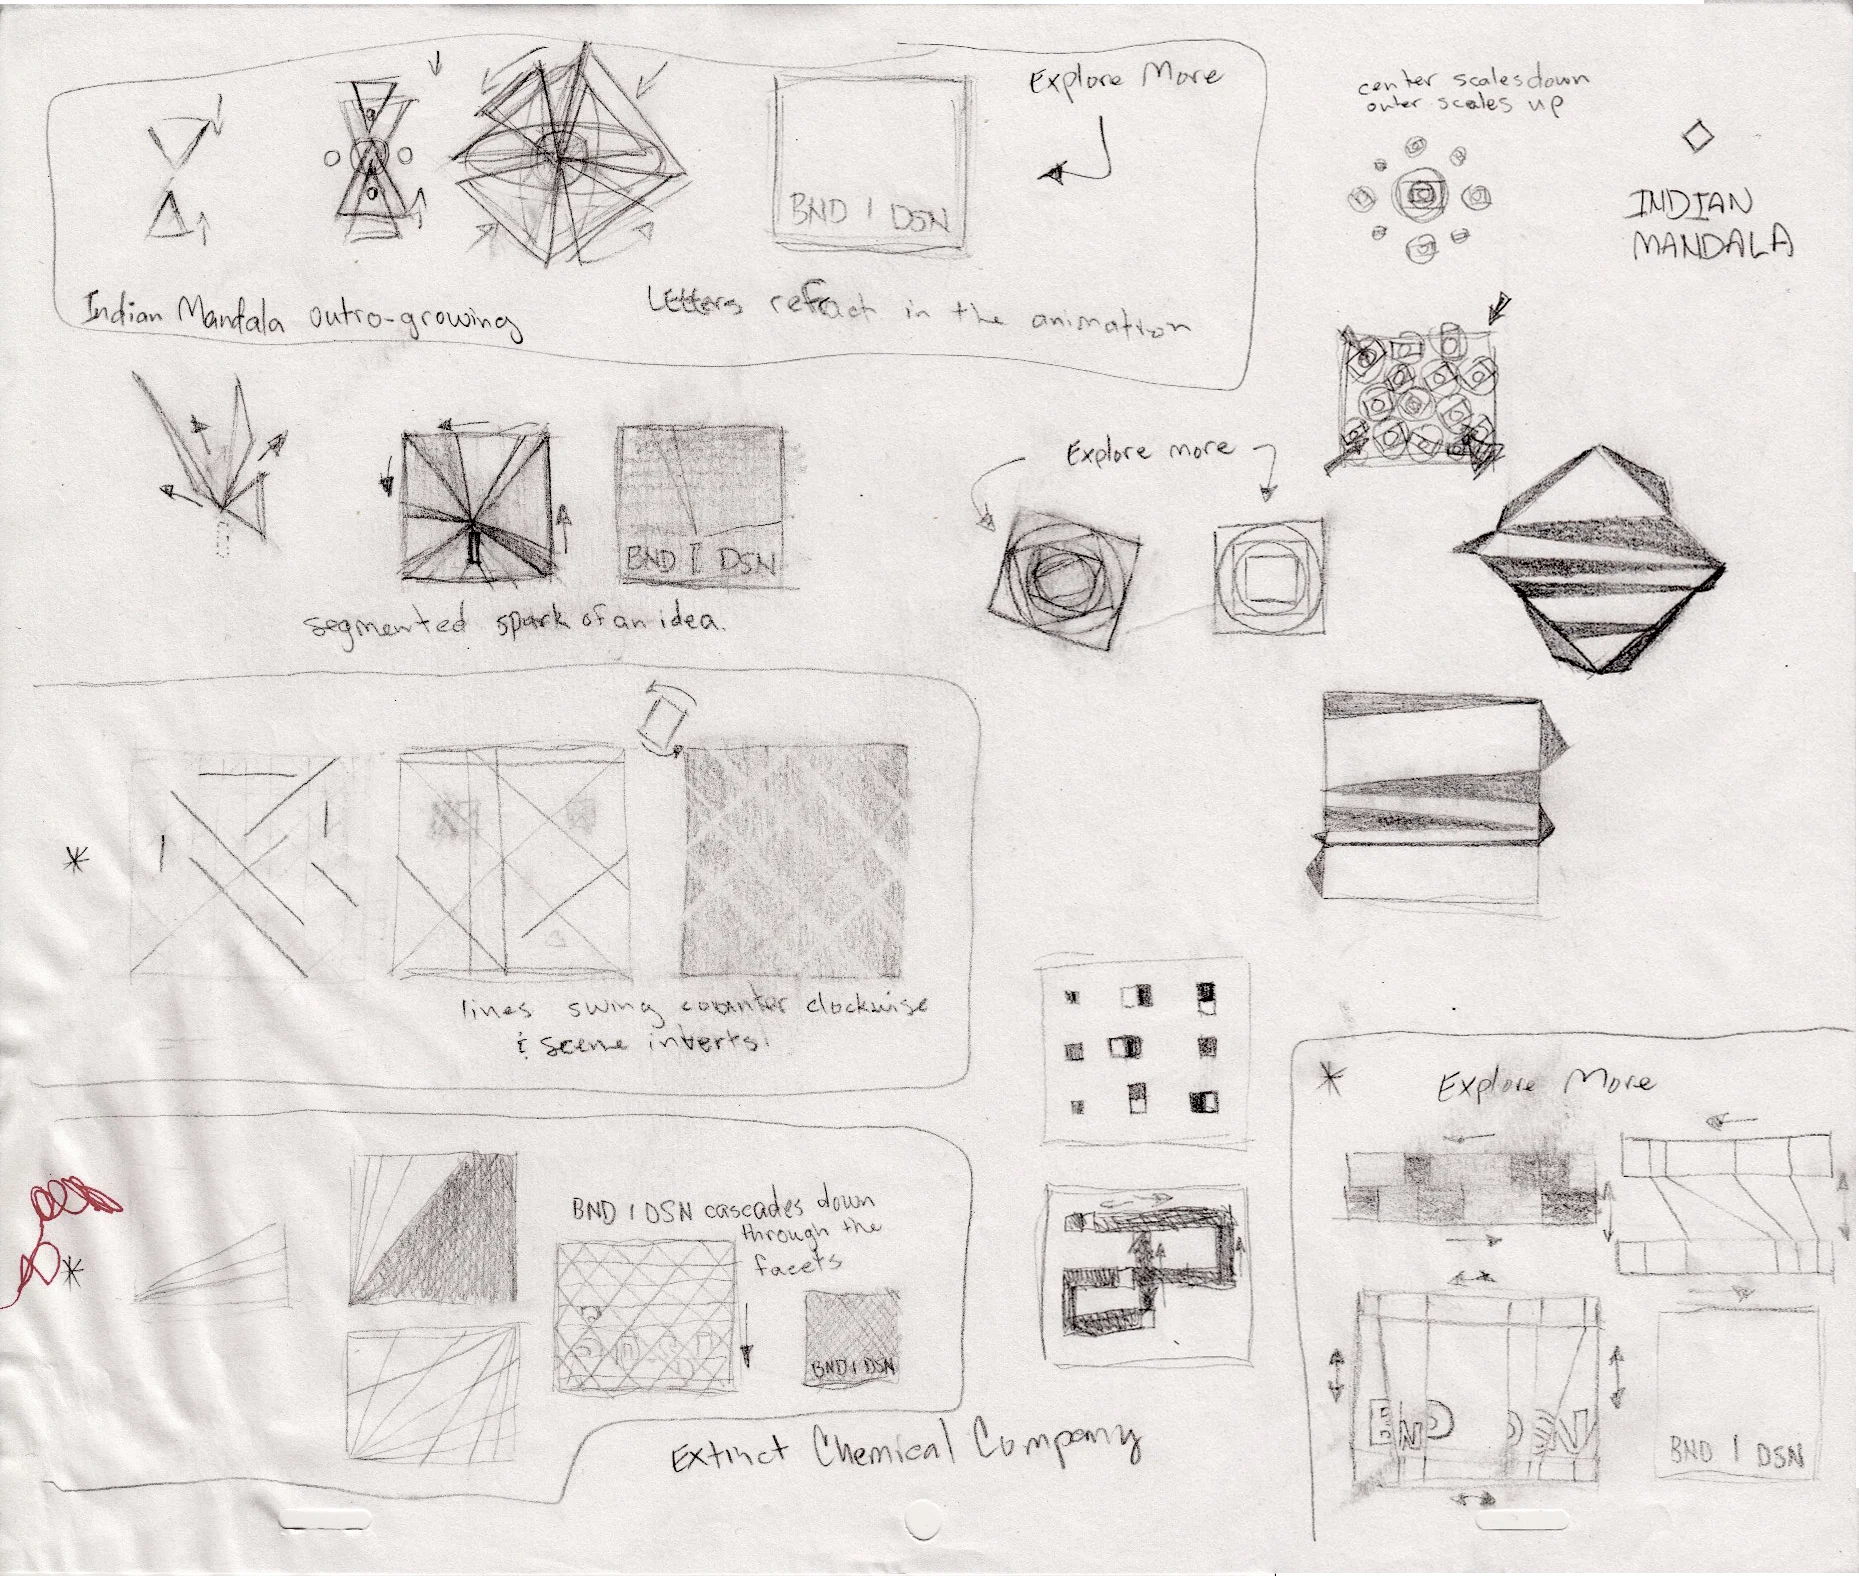 Explore More
BND | DSN
Indian Mandala outro-growing
Letters refract in the animation
center scales down
outer scales up
INDIAN
MANDALA
BND I DSN
segmented spark of an idea.
Explore more
lines swing counter clockwise
& scene inverts.
BND | DSN cascades down
through the
facets
BND | DSN
Extinct Chemical Company
Explore More
BND DSN
BND | DSN